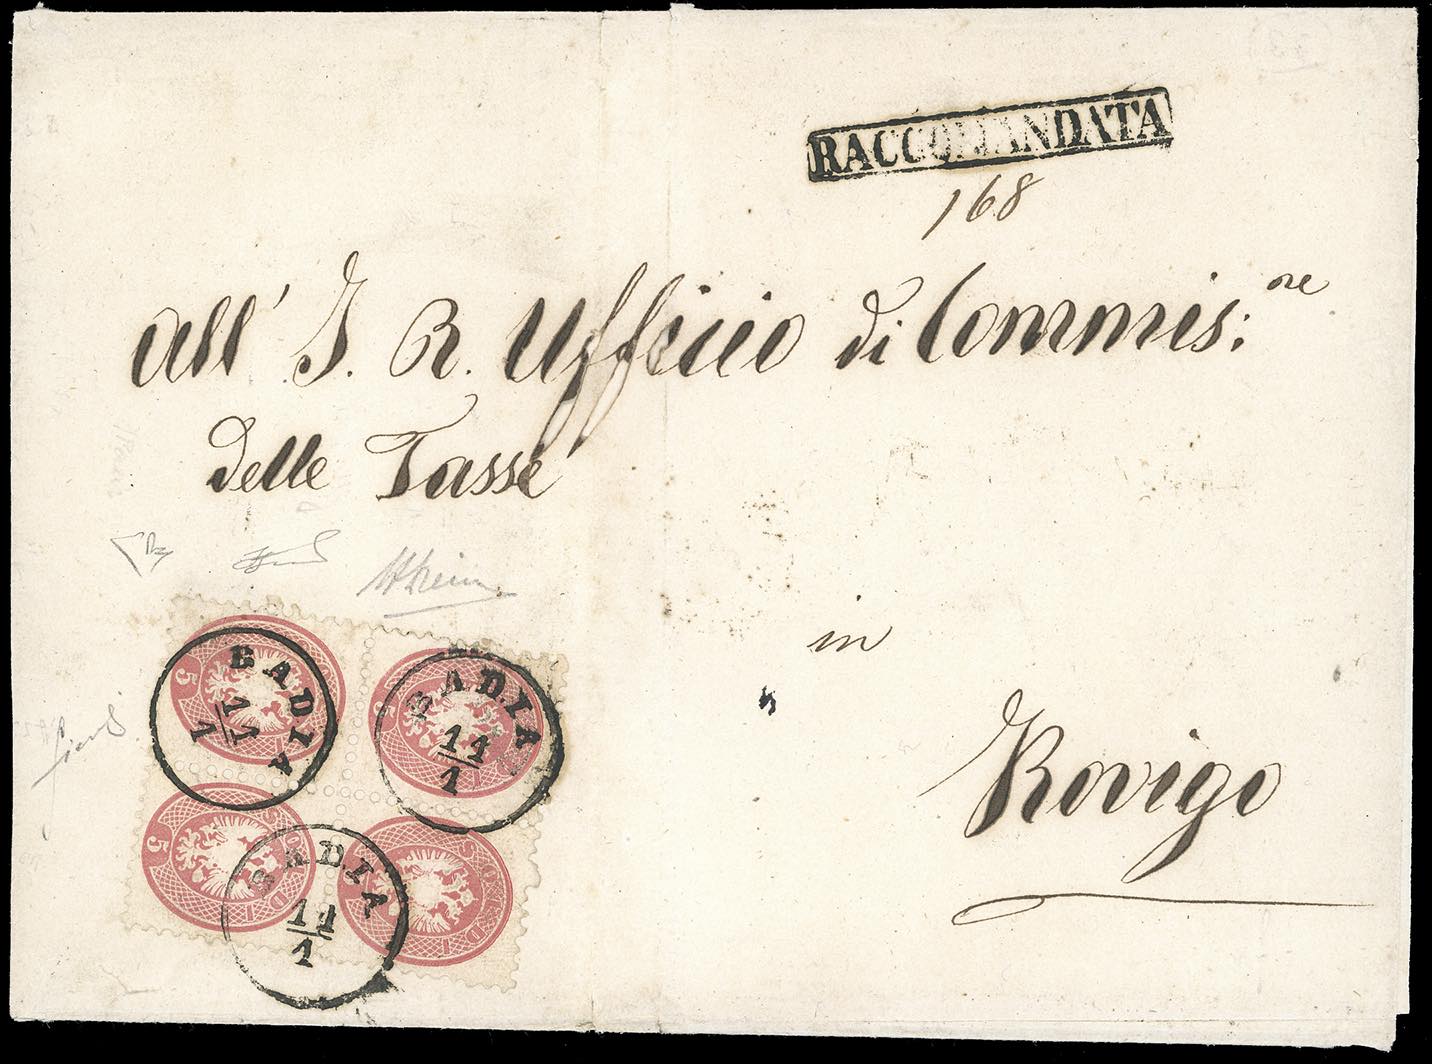 RACCOMANDATA
168
all' I. R. Ufficio di Commis:ne
delle Tasse
in
Rovigo
BADIA
11
1
5
SOLDI
BADIA
11
1
SOLDI
5
SOLDI
BADIA
11
1
SOLDI